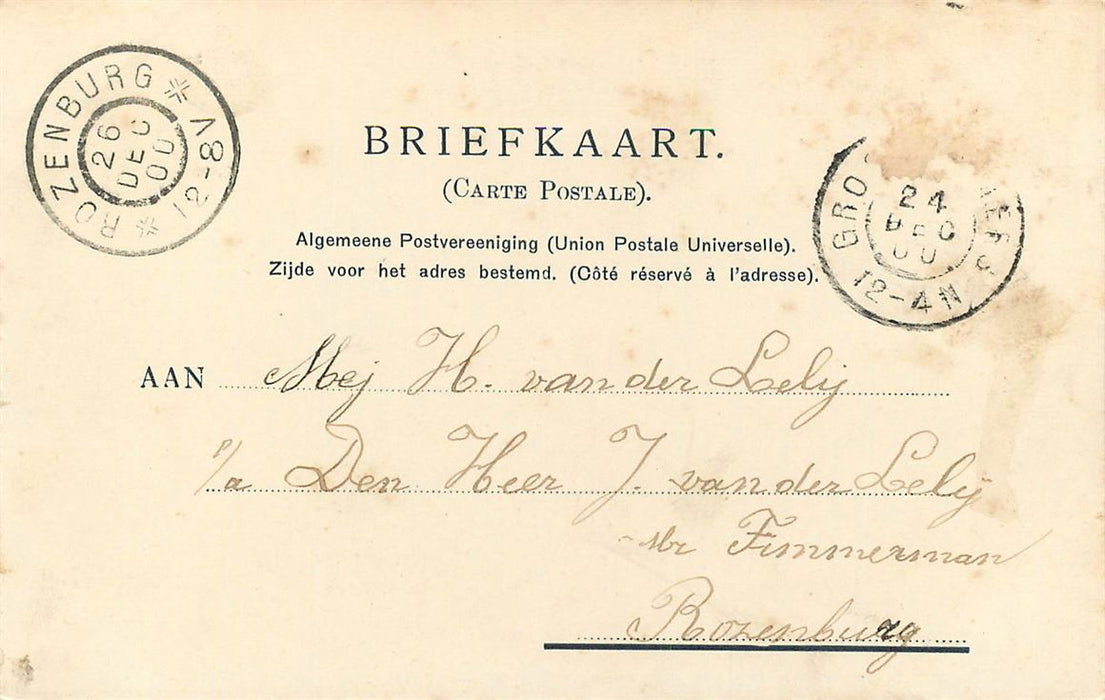 ROZENBURG
26
DEC
00
12-8V
BRIEFKAART.
(CARTE POSTALE).
Algemeene Postvereeniging (Union Postale Universelle).
Zijde voor het adres bestemd. (Côté réservé à l'adresse).
24
DEC
00
12-4N
AAN Mej H. van der Lely
p/a Den Heer J. van der Lely
Mr Timmerman
Rozenburg